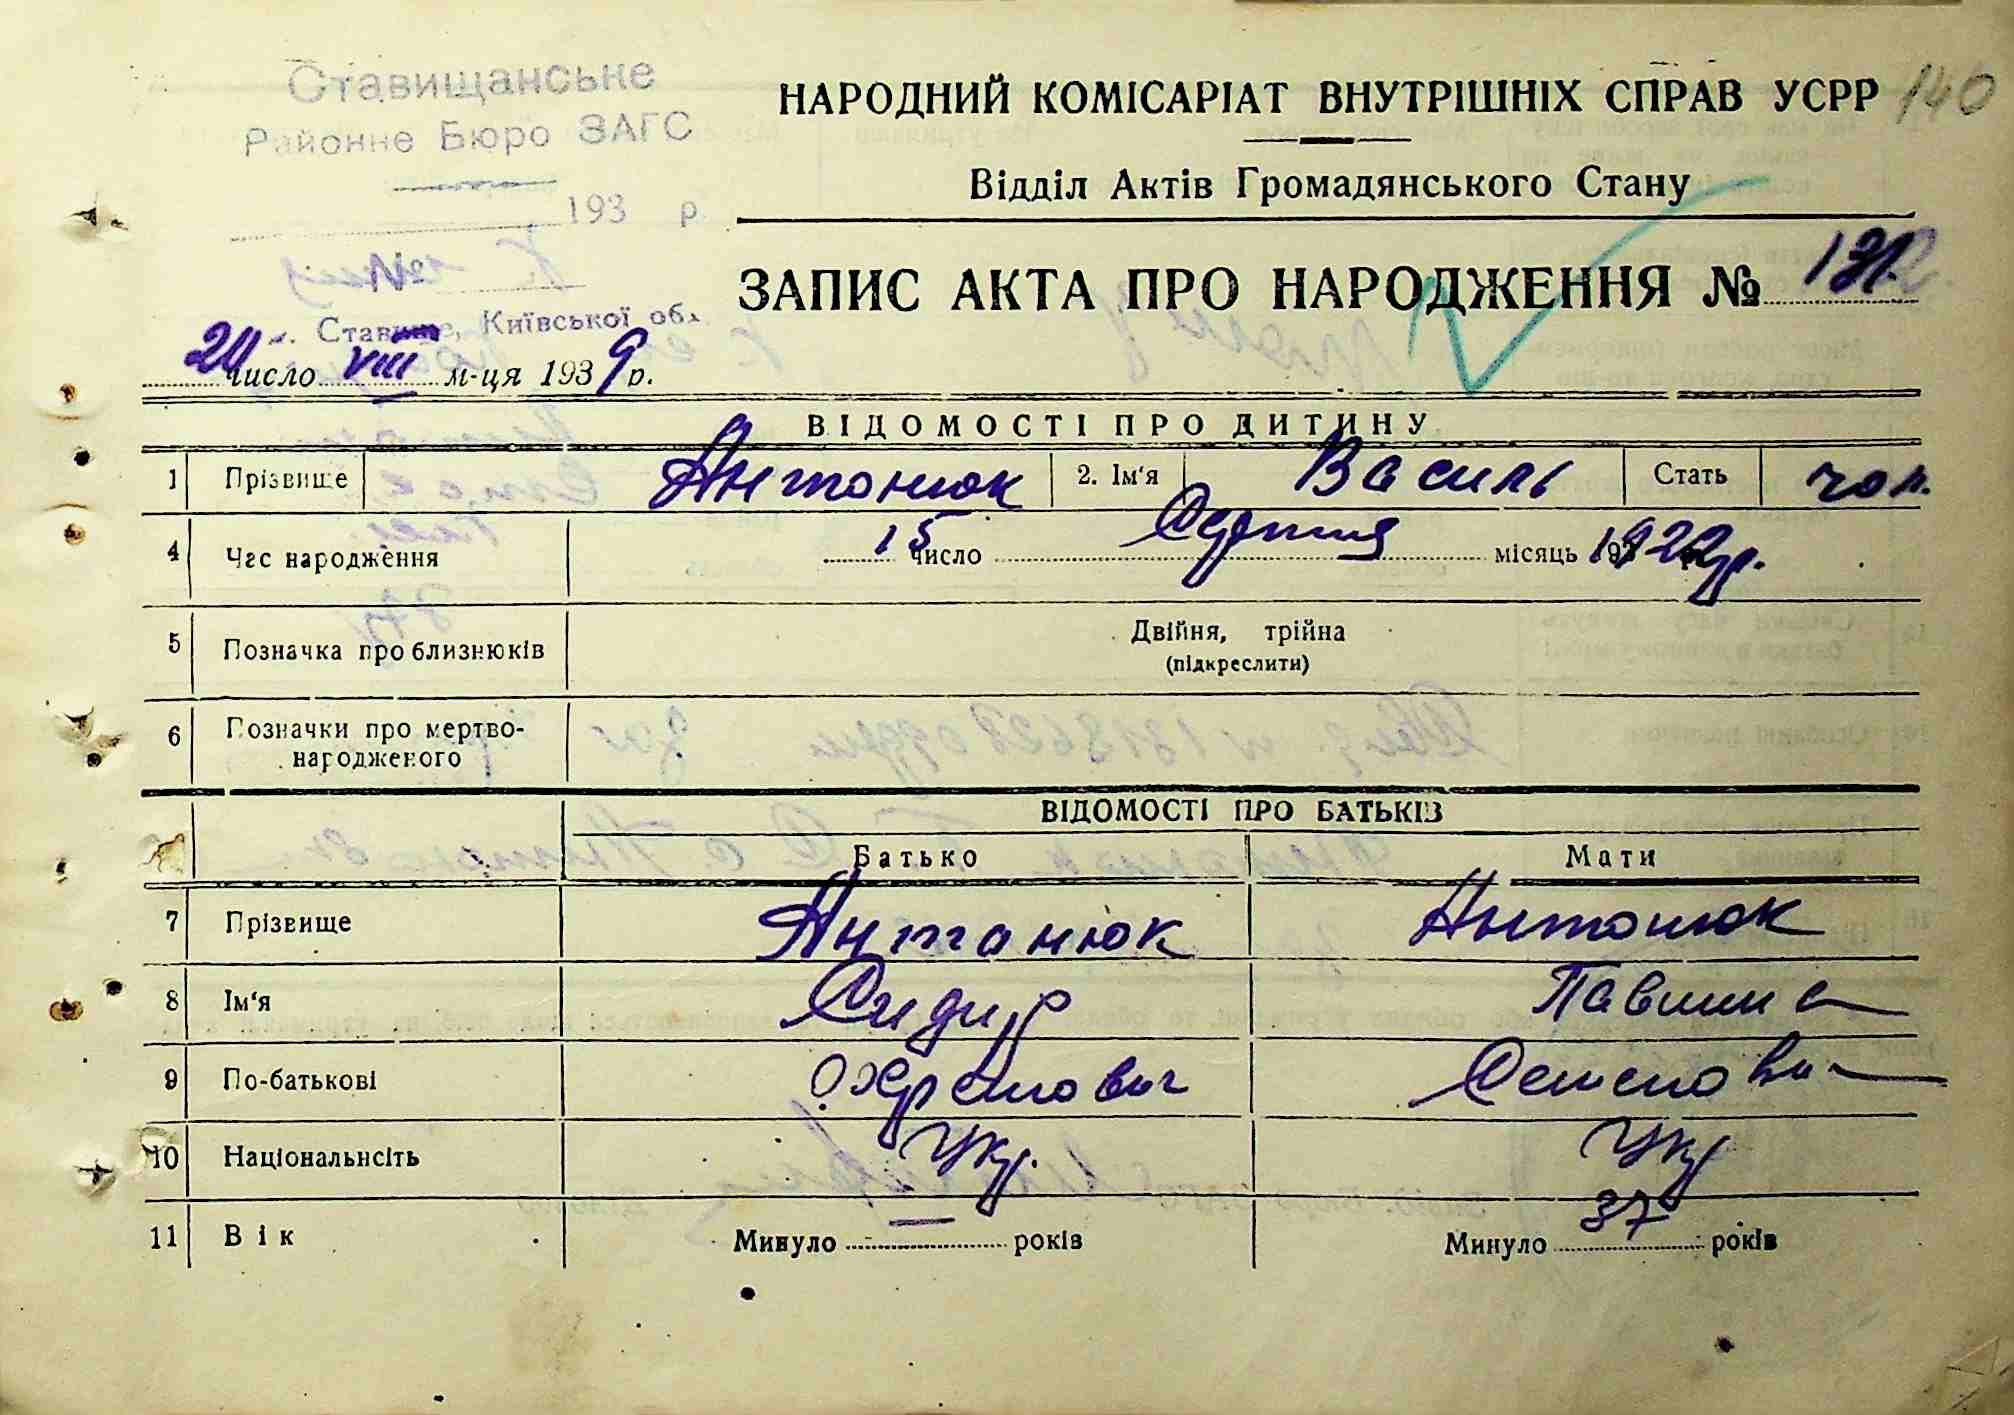 Ставищанське
Районне Бюро ЗАГС
193 р.
№
м. Ставище, Київської обл.
20 число VIII м-ця 1939 р.
НАРОДНИЙ КОМІСАРІАТ ВНУТРІШНІХ СПРАВ УСРР 140
Відділ Актів Громадянського Стану
ЗАПИС АКТА ПРО НАРОДЖЕННЯ №
ВІДОМОСТІ ПРО ДИТИНУ
1 Прізвище Антонюк 2. Ім'я Василь Стать чол.
4 Час народження 15 число Серпня місяць 1922 р.
5 Позначка про близнюків Двійня, трійна
(підкреслити)
6 Позначки про мертво-
народженого
ВІДОМОСТІ ПРО БАТЬКІВ
Батько Мати
7 Прізвище Антонюк Антонюк
8 Ім'я Сидир
9 По-батькові Охремович Семеновн
10 Національнсіть Укр. Укр
11 Вік Минуло — років Минуло 37 років